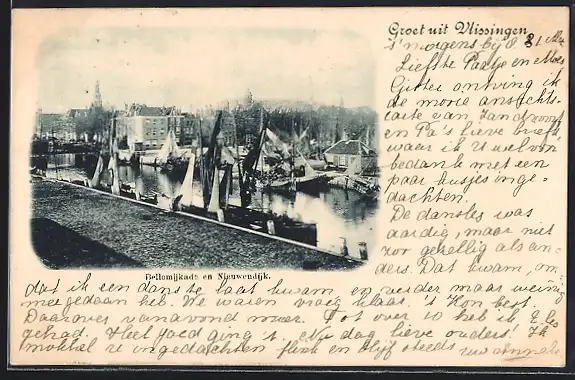 Groet uit Vlissingen
's morgens bij 8. 31 Mei
Liefste Paatje en Moes
Gister ontving ik
de mooie ansichts-
caarte van Zandvoort
en Pa's lieve brief,
waar ik U wel voor
bedank met een
paar kusjes in ge-
dachten.
De dansles was
aardig, maar niet
zoo gezellig als an-
ders. Dat kwam, om-
Bellamijkade en Nieuwendijk.
dat ik een dans te laat kwam en verder maar weinig
mee gedaan heb. We waren vroeg klaar. 's Kon best.
Daarover vanavond meer. Tot over 10 heb ik
gehad. Heel goed ging 't. Nu dag lieve ouders!
U in gedachten flink en blijf steeds uw